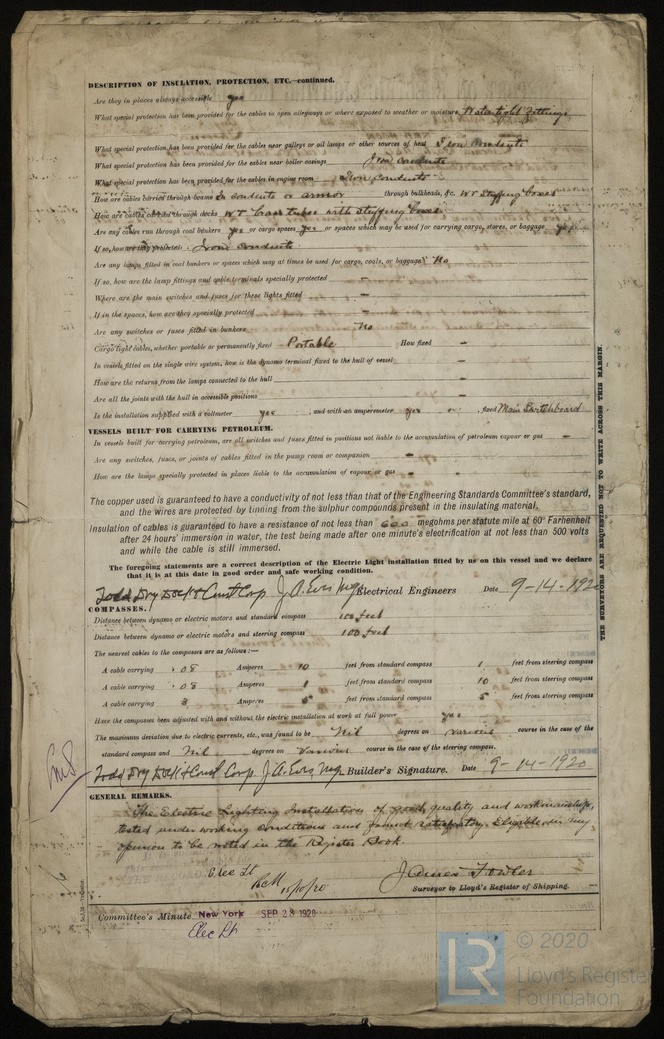 DESCRIPTION OF INSULATION, PROTECTION, ETC.—continued.
Are they in places always accessible yes
What special protection has been provided for the cables in open alleyways or where exposed to weather or moisture Watertight fittings
What special protection has been provided for the cables near galleys or oil lamps or other sources of heat Iron conduits
What special protection has been provided for the cables near boiler casings Iron conduits
What special protection has been provided for the cables in engine room Iron conduits
How are cables carried through beams In conduits or armor through bulkheads, &c. WT Stuffing boxes
How are cables carried through decks WT brass tubes with stuffing boxes
Are any cables run through coal bunkers yes or cargo spaces yes or spaces which may be used for carrying cargo, stores, or baggage yes
If so, how are they protected Iron conduits
Are any lamps fitted in coal bunkers or spaces which may at times be used for cargo, coals, or baggage No
If so, how are the lamp fittings and cable terminals specially protected —
Where are the main switches and fuses for these lights fitted —
If in the spaces, how are they specially protected —
Are any switches or fuses fitted in bunkers No
Cargo light cables, whether portable or permanently fixed Portable How fixed —
In vessels fitted on the single wire system, how is the dynamo terminal fixed to the hull of vessel —
How are the returns from the lamps connected to the hull —
Are all the joints with the hull in accessible positions —
Is the installation supplied with a voltmeter yes , and with an amperemeter yes , fixed Main Switchboard
VESSELS BUILT FOR CARRYING PETROLEUM.
In vessels built for carrying petroleum, are all switches and fuses fitted in positions not liable to the accumulation of petroleum vapour or gas —
Are any switches, fuses, or joints of cables fitted in the pump room or companion —
How are the lamps specially protected in places liable to the accumulation of vapour or gas —
The copper used is guaranteed to have a conductivity of not less than that of the Engineering Standards Committee's standard,
and the wires are protected by tinning from the sulphur compounds present in the insulating material.
Insulation of cables is guaranteed to have a resistance of not less than 600 megohms per statute mile at 60° Farhenheit
after 24 hours' immersion in water, the test being made after one minute's electrification at not less than 500 volts
and while the cable is still immersed.
The foregoing statements are a correct description of the Electric Light installation fitted by us on this vessel and we declare
that it is at this date in good order and safe working condition.
Todd Dry Dock & Const Corp. J. A. Mgr. Electrical Engineers Date 9-14-1920
COMPASSES.
Distance between dynamo or electric motors and standard compass 100 feet
Distance between dynamo or electric motors and steering compass 100 feet
The nearest cables to the compasses are as follows:—
A cable carrying .08 Amperes 10 feet from standard compass 1 feet from steering compass
A cable carrying .08 Amperes 1 feet from standard compass 10 feet from steering compass
A cable carrying 3 Amperes 5 feet from standard compass 5 feet from steering compass
Have the compasses been adjusted with and without the electric installation at work at full power yes
The maximum deviation due to electric currents, etc., was found to be Nil degrees on various course in the case of the
standard compass and Nil degrees on Various course in the case of the steering compass.
Todd Dry Dock & Const Corp. J. A. Mgr. Builder's Signature. Date 9-14-1920
GENERAL REMARKS.
The Electric Lighting Installation of good quality and workmanship,
tested under working conditions and found satisfactory. Eligible in my
opinion to be noted in the Register Book.
Elec Lt
15/10/20
James Fowler
Surveyor to Lloyd's Register of Shipping.
Committee's Minute New York SEP 28 1920
Elec Lt
THE SURVEYORS ARE REQUESTED NOT TO WRITE ACROSS THIS MARGIN.
LR
© 2020
Lloyd's Register
Foundation